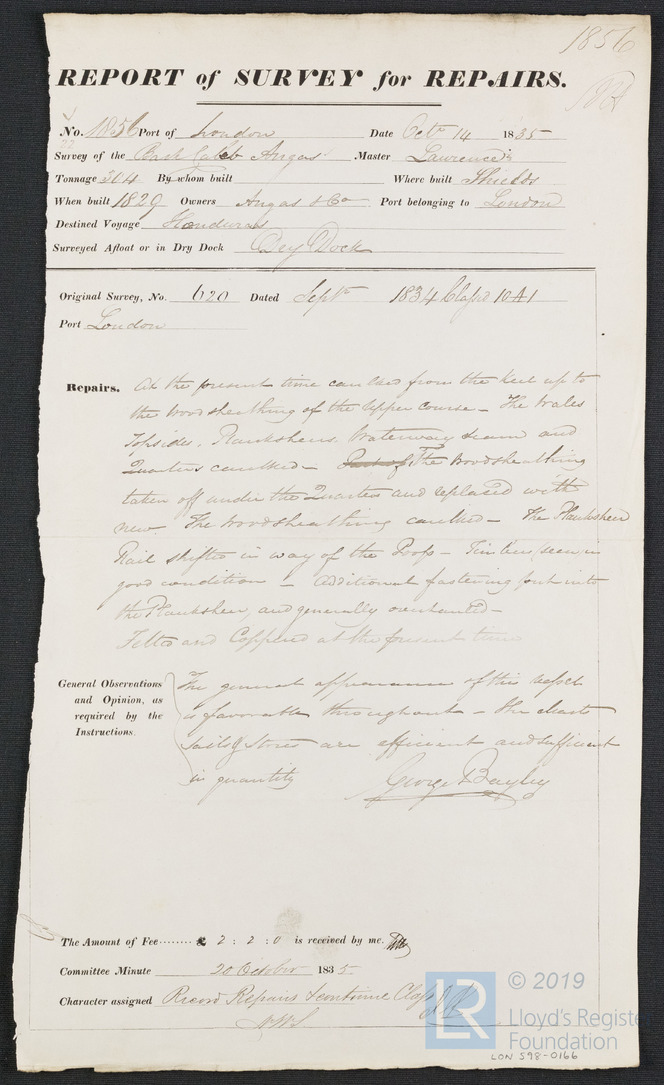 1856
REPORT of SURVEY for REPAIRS.
No. 1856 Port of London Date Octr 14 1835
Survey of the Bark Caleb Angas Master Lawrence
Tonnage 304 By whom built Where built Shields
When built 1829 Owners Angas & Co Port belonging to London
Destined Voyage Honduras
Surveyed Afloat or in Dry Dock Dry Dock
Original Survey, No. 620 Dated Septr 1834 Classd 10 A 1
Port London
Repairs. At the present time caulked from the keel up to
the wood sheathing of the upper course - The Wales
Topsides, Plankshears, Waterway seam and
Quarters caulked - The Wood sheathing
taken off under the Quarters and replaced with
new. The wood sheathing caulked - the Planksheer
Rail shifted in way of the Poop - Timbers seen in
good condition - additional fastening put into
the Planksheer, and generally overhauled -
Felted and Coppered at the present time
General Observations and Opinion, as required by the Instructions.
The general appearance of this vessel
is favorable throughout - the chart
sails & stores are efficient and sufficient
in quantity George Bayley
The Amount of Fee........ £ 2 : 2 : 0 is received by me.
Committee Minute 20 October 1835
Character assigned Record Repairs & continue Class
LR
© 2019
Lloyd's Registe
Foundation
LON 598-0166